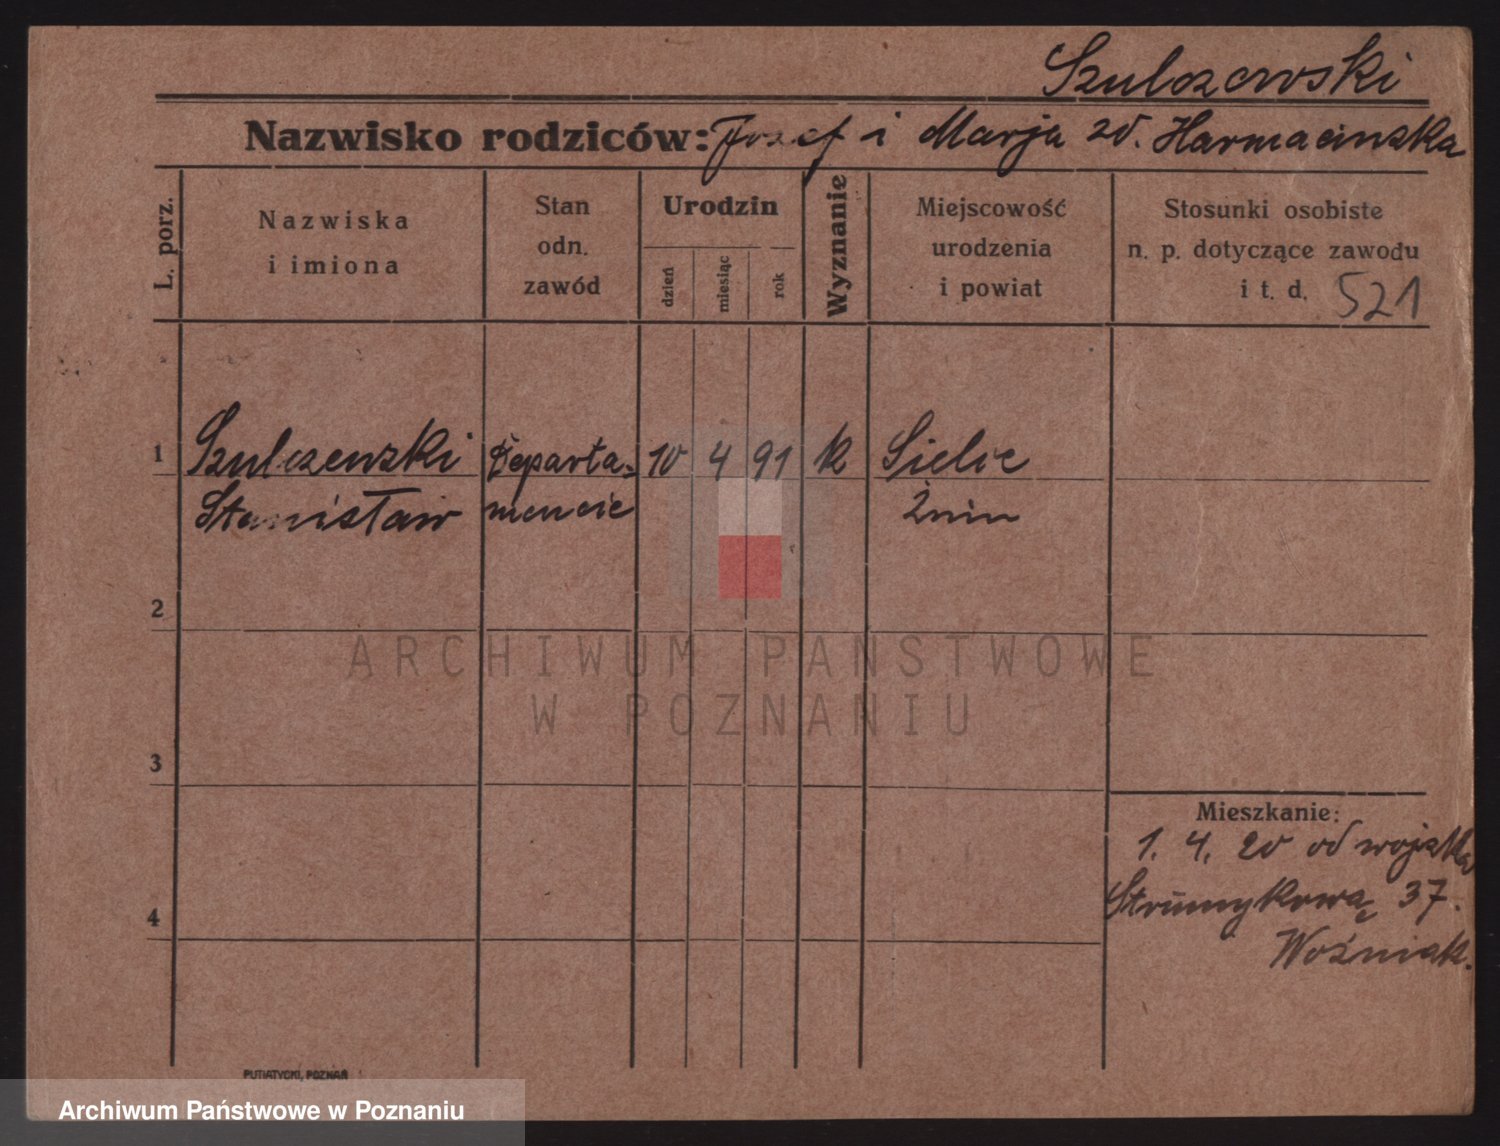 Szulczewski
Nazwisko rodziców: Jozef i Marja zd. Harmacinska
L. porz.
Nazwiska
i imiona
Stan
odn.
zawód
Urodzin
dzień
miesiąc
rok
Wyznanie
Miejscowość
urodzenia
i powiat
Stosunki osobiste
n. p. dotyczące zawodu
i t. d. 521
1 Szulczewski Departa- 10 4 91 k Sielec
Stanisław mencie Żnin
2
ARCHIWUM PAŃSTWOWE
W POZNANIU
3
Mieszkanie:
1. 4. 20 od wojska
Strumykowa 37.
4
Woźniak.
PUTIATYCKI, POZNAŃ
Archiwum Państwowe w Poznaniu